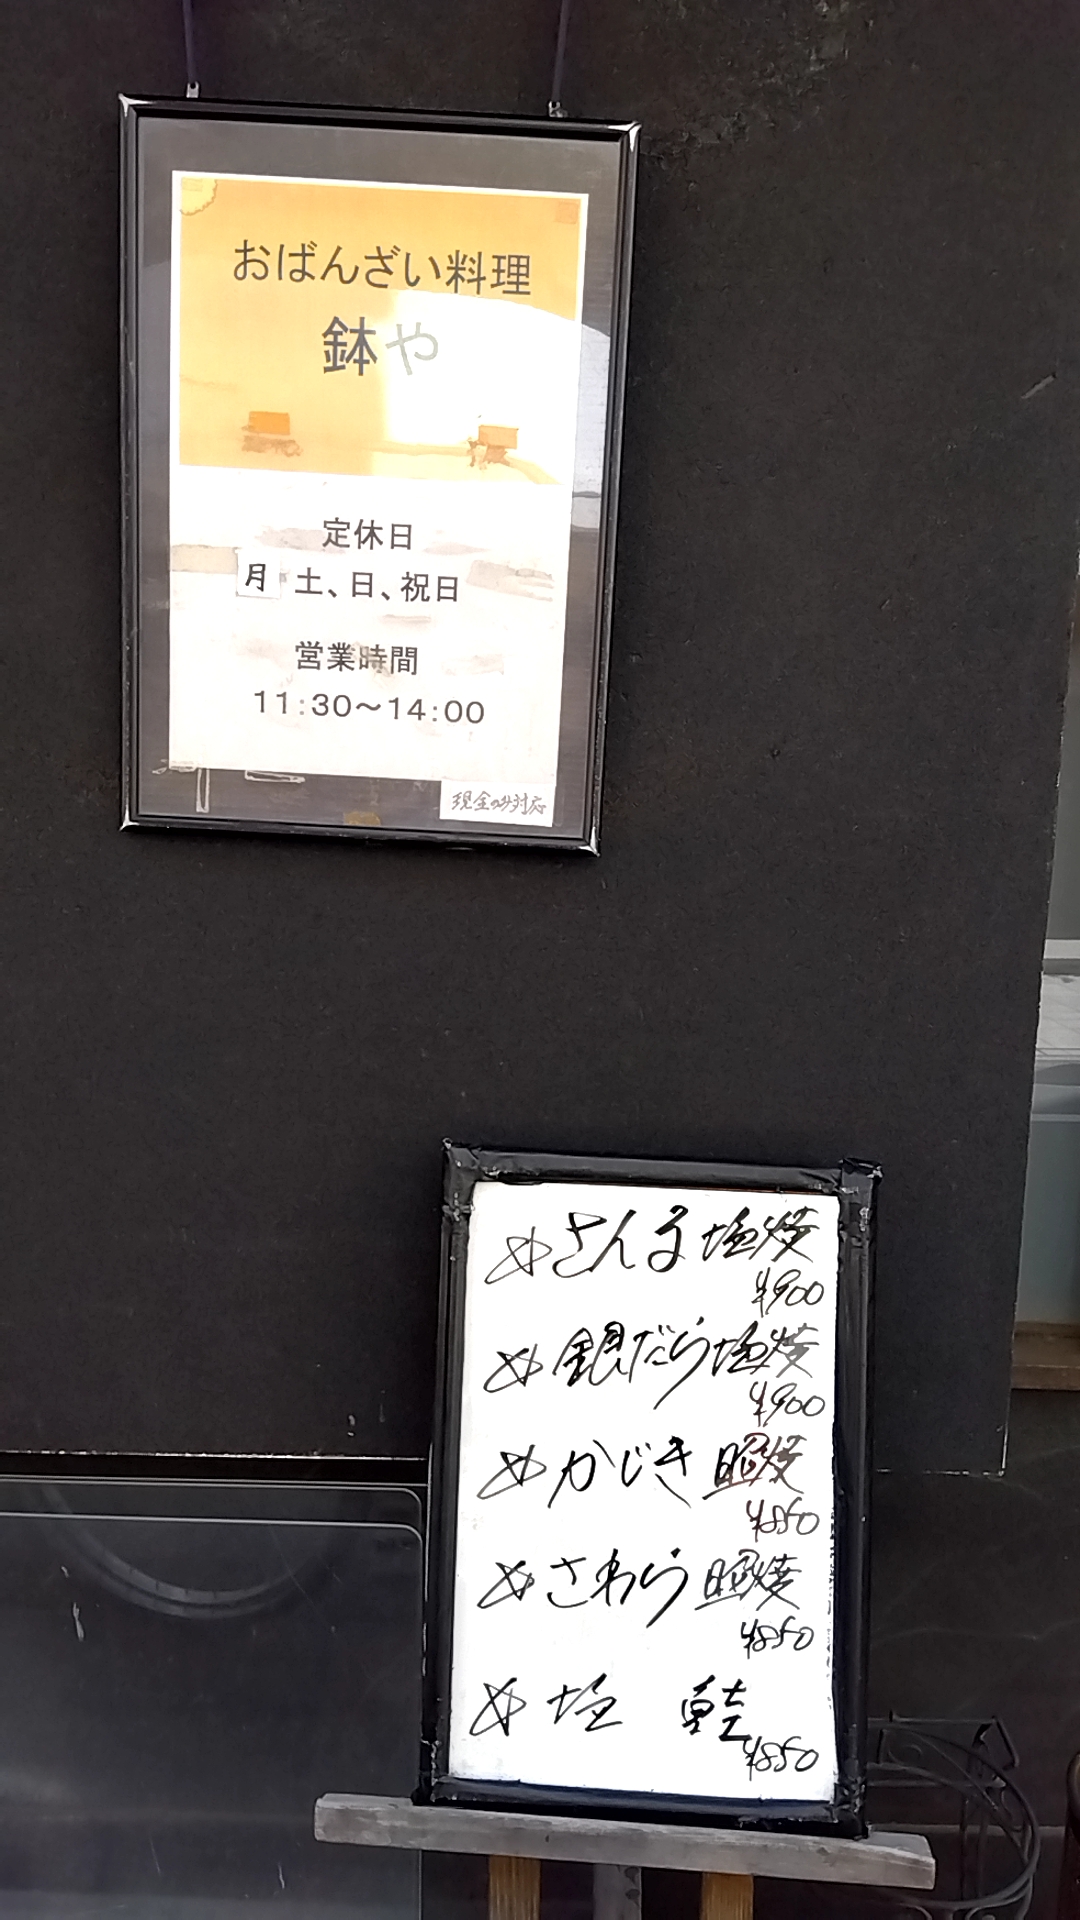 おばんざい料理
鉢や
定休日
月 土、日、祝日
営業時間
11:30～14:00
現金のみ対応
さんま塩焼
¥900
銀だら塩焼
¥900
かじき照焼
¥850
さわら照焼
¥850
塩 鮭
¥850